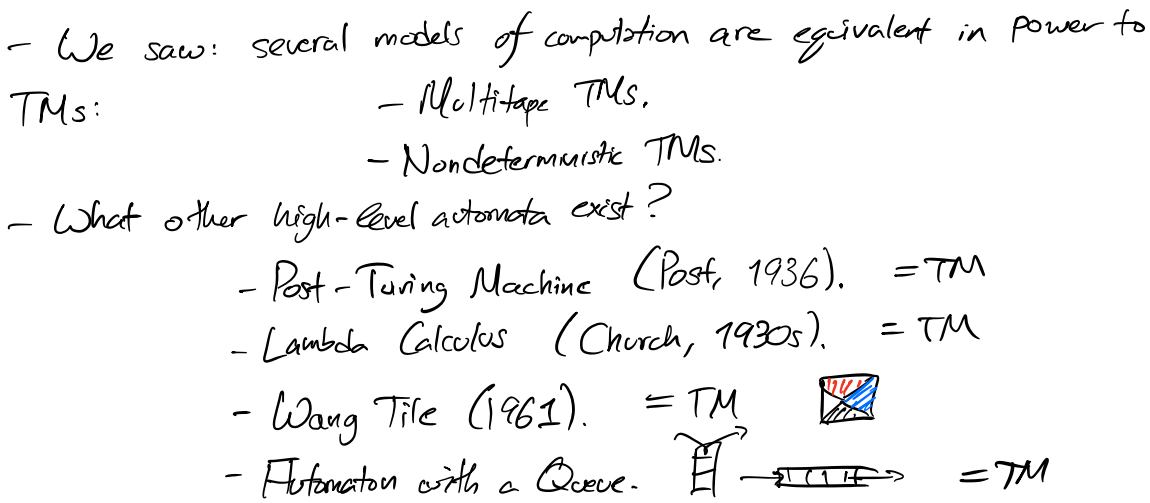 - We saw: several models of computation are equivalent in power to
TMs: - Multitape TMs.
- Nondeterministic TMs.
- What other high-level automata exist?
- Post-Turing Machine (Post, 1936). = TM
- Lambda Calculus (Church, 1930s). = TM
- Wang Tile (1961). = TM
- Automaton with a Queue. = TM